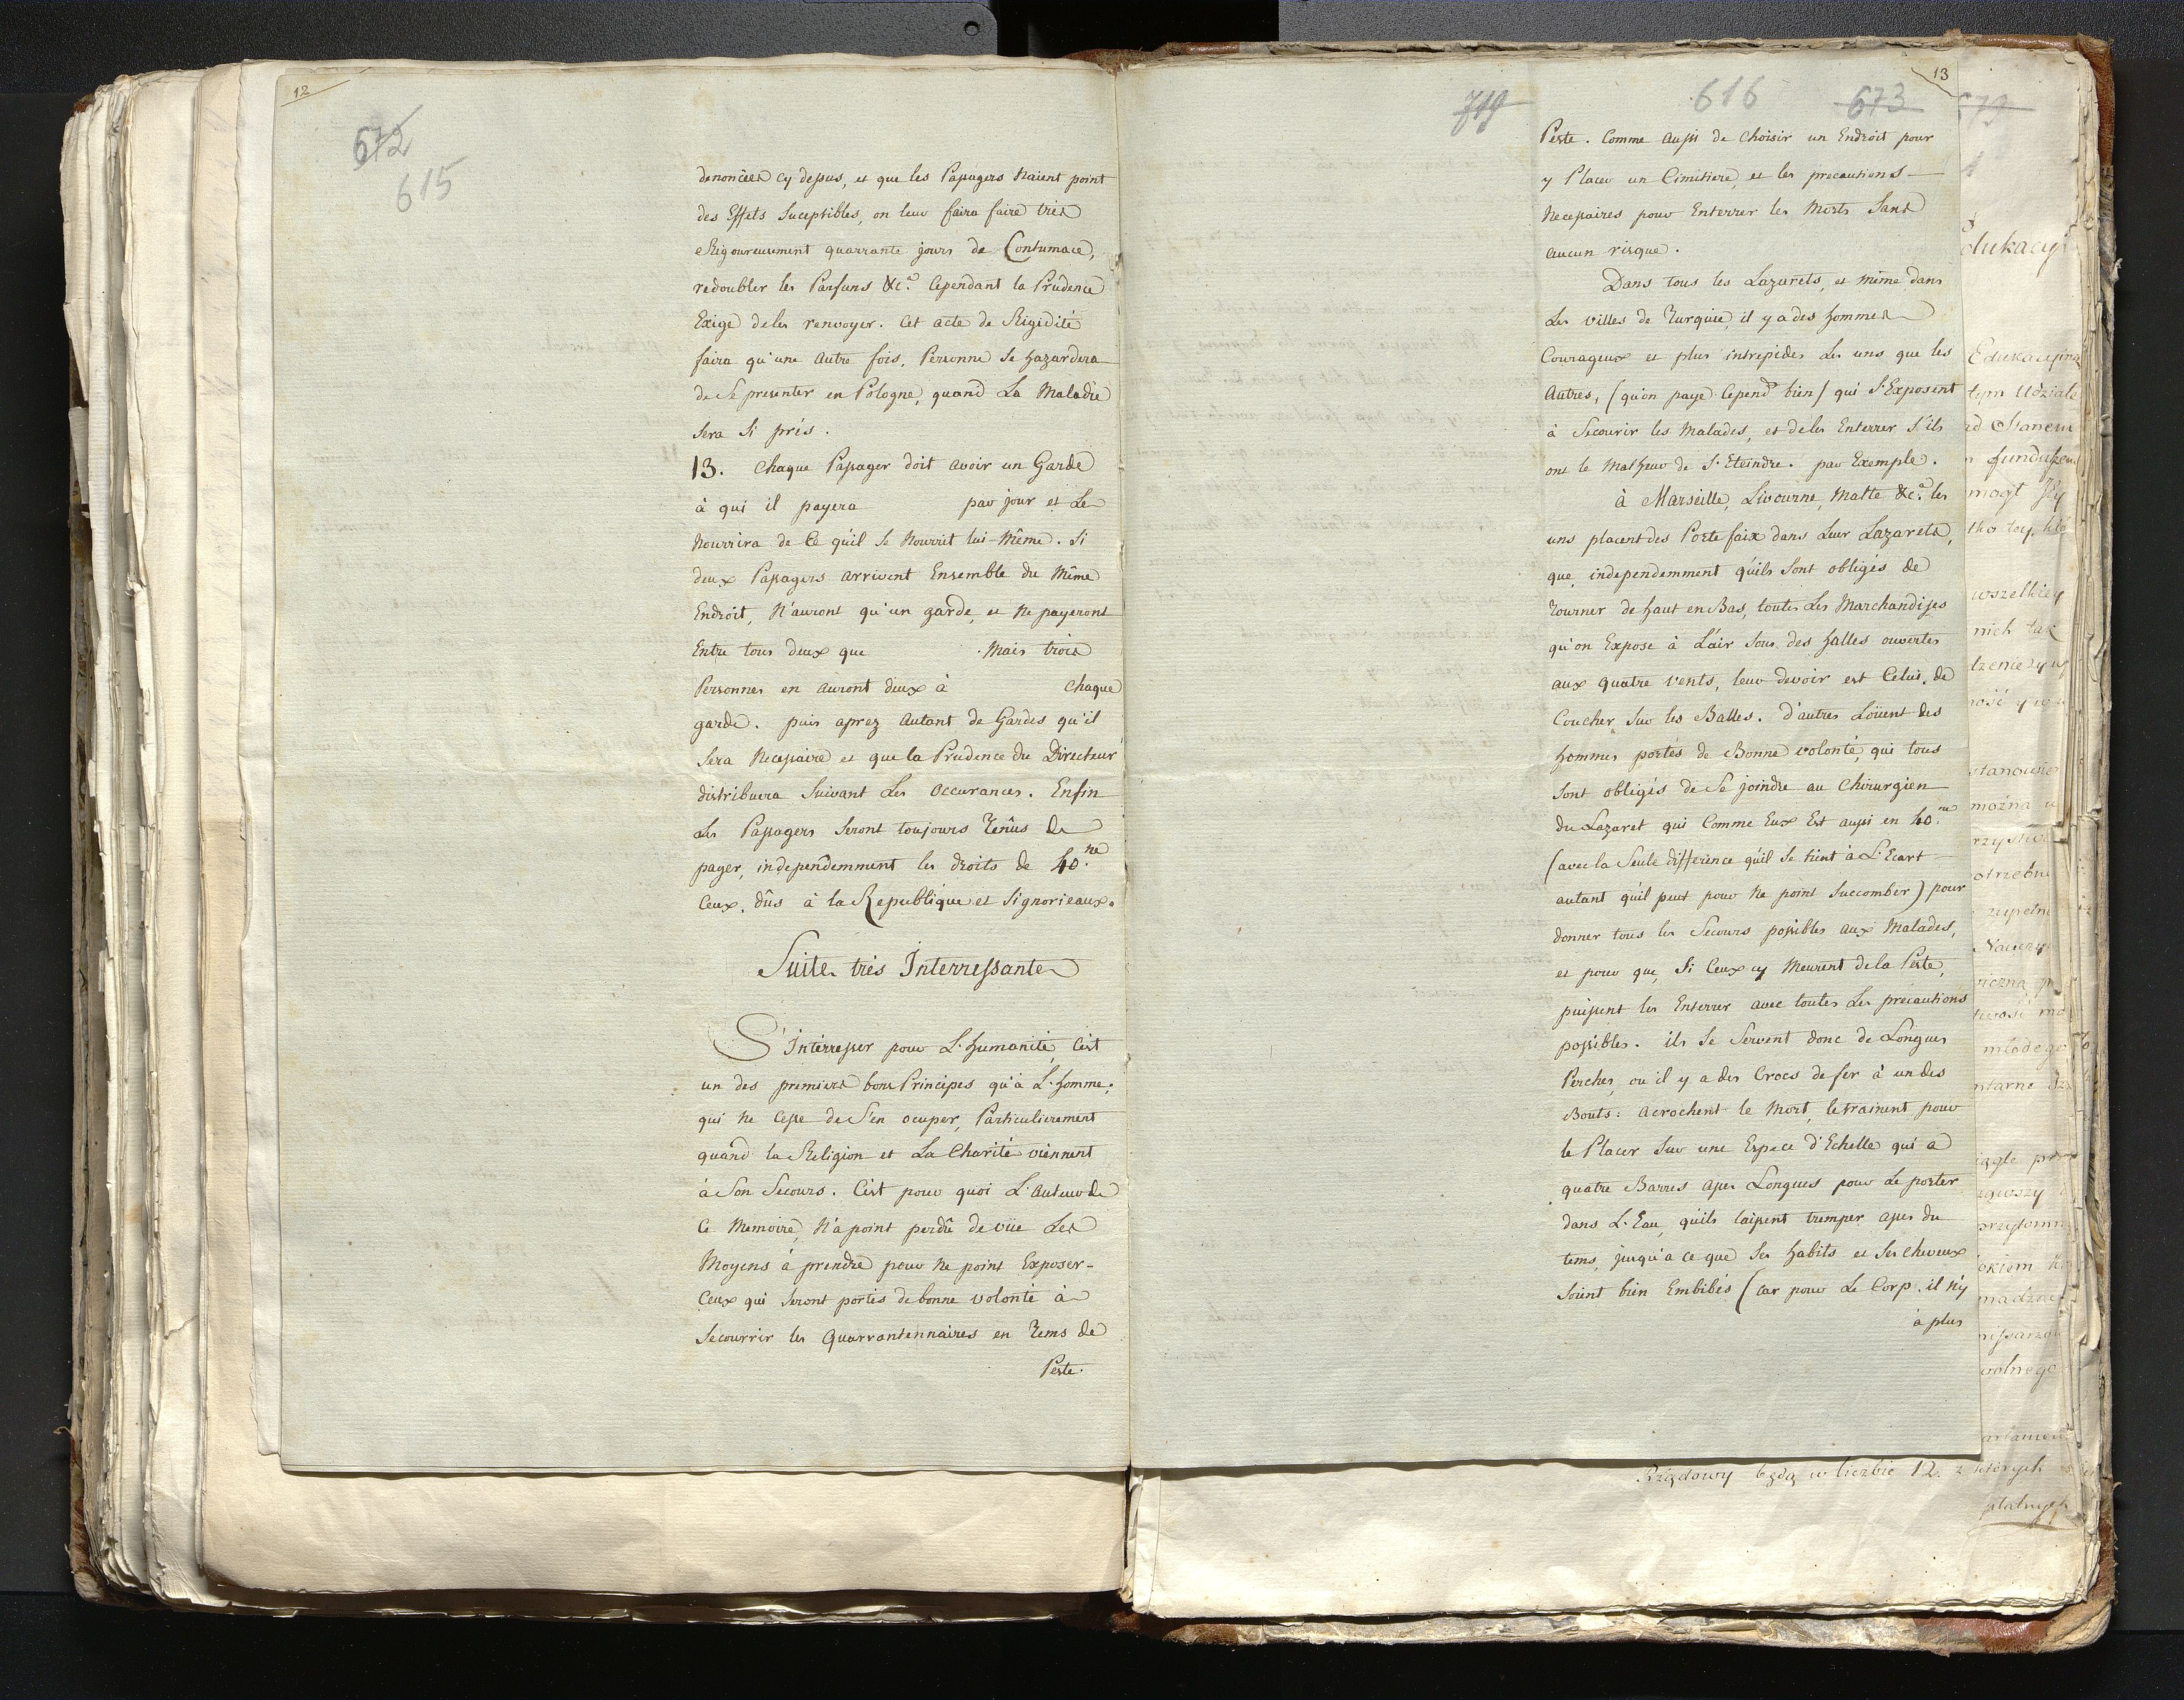 12
672
615
denoncées cy dessus, et que les Passagers n'aient point
des Effets Suceptibles, on leur faira faire très
Rigoureusement quarrante jours de Contumace,
redoubler les Parfuns &c.ª Cependant la Prudence
Exige de les renvoyer. Cet acte de Rigidité
faira qu'une Autre fois, Personne se hazardera
de Se presenter en Pologne, quand La Maladie
Sera Si près.
13. Chaque Passager doit avoir un Garde
à qui il payera par jour et Le
Nourrira de Ce qu'il Se Nourrit lui-Même. Si
deux Passagers arrivent Ensemble du Même
Endroit, N'auront qu'un garde, et Ne payeront
Entre tous deux que . Mais trois
Personnes en auront deux à chaque
garde. puis aprez Autant de Gardes qu'il
Sera Necessaire et que la Prudence du Directeur
distribuera Suivant Les occurances. Enfin
Les Passagers Seront toujours Tenûs de
payer, independemment les droits de 40.ne
Ceux, dûs à la Republique et Signorieaux.
Suite très Interressante
S'Intérresser pour L'humanité, C'est
un des premiers bons Principes qu'à L'homme,
qui Ne Cesse de S'en ocuper, Particulierement
quand la Religion et La Charité viennent
à Son Secours. C'est pour quoi L'Auteur de
Ce Memoire, N'a point perdû de vüe Les
Moyens à prendre pour Ne point Exposer-
Ceux qui Seront portés de bonne volonté à
Secourrir les Quarrantennaires en Tems de
Peste.
719 616 673 673
13
Peste. Comme Aussi de Choisir un Endroit pour
y Placer un Cimitiere, et les precautions
Necessaires pour Enterrer les Morts Sans
aucun risque.
Dans tous les Lazarets, et même dans
Les villes de Turquie, il y a des hommes
Courageux et plus intrepides Les uns que les
Autres, (qu'on paye Cepend.t bien) qui S'Exposent
à Secourir les Malades, et de les Enterrer S'ils
ont le Malheur de S'Eteindre. par Exemple.
à Marseille, Livourne, Malte &c.ª les
uns placent des Porte faix dans Leur Lazarets,
que independemment qu'ils Sont obligés de
Tourner de haut en Bas, toutes Les Marchandises
qu'on Expose à L'air Sous des halles ouvertes
aux quatre vents, leur devoir est Celui de
Coucher Sur les Balles. D'autres Loüent des
hommes portés de Bonne volonté, qui tous
Sont obligés de Se joindre au Chirurgien
du Lazaret qui Comme Eux Est aussi en 40.ne
(avec la Seule différence qu'il Se tient à L'Ecart
autant qu'il peut pour Ne point Succomber) pour
donner tous les Secours possibles aux Malades,
et pour que, Si Ceux cy Meurent de la Peste,
puissent les Enterrer avec toutes Les précautions
possibles. ils Se Servent donc de Longues
Perches, ou il y a des Crocs de fer à un des
Bouts: Acrochent le Mort, le trainent pour
le Placer Sur une Espece d'Echelle qui a
quatre Barres assés Longues pour Le porter
dans L'Eau, qu'ils laissent tremper assés du
tems, jusqu'à ce que Ses habits et Ses cheveux
Soient bien Embibés (car pour Le Corp. il n'y
à plus
Edukacyin
wszelkiey
nich tak
można
młodego
volnego
Rządowy będą w liczbie 12. z których
płatnych